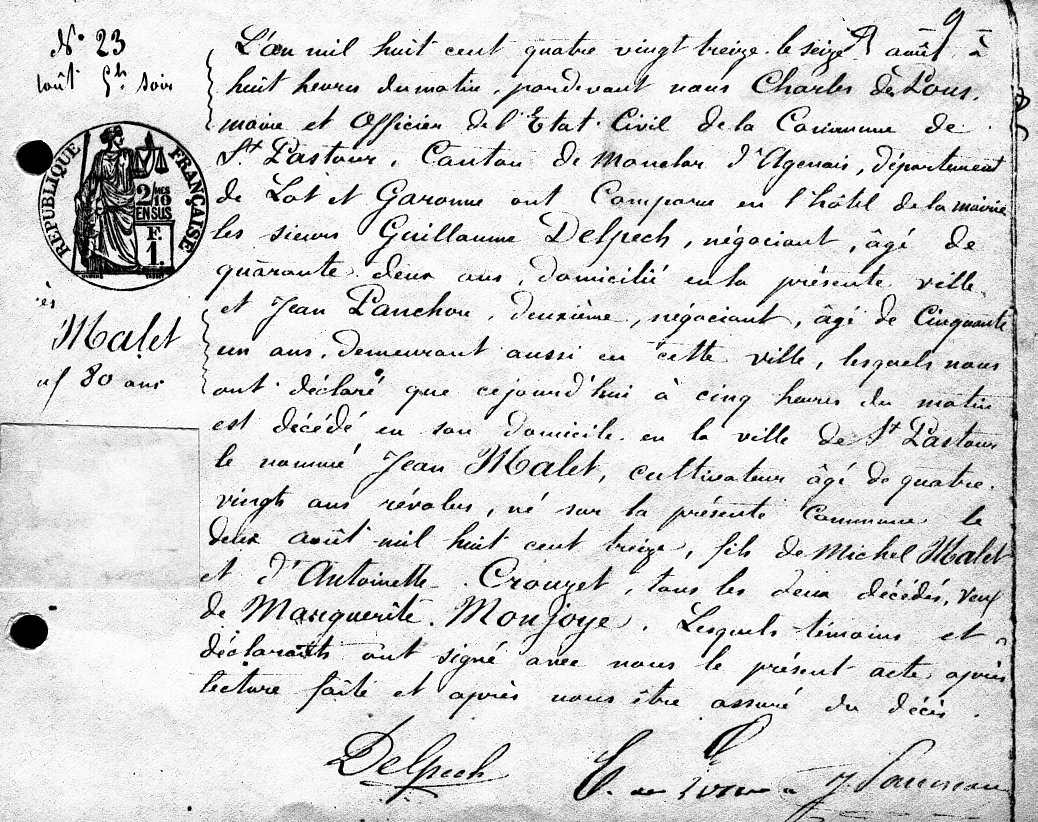 9
N° 23
août 5h. soir
RÉPUBLIQUE FRANÇAISE
2 MES
10
EN SUS
F.
1.
Malet
80 ans
L'an mil huit cent quatre vingt treize le seize août à
huit heures du matin, pardevant nous Charles de
maire et Officier de l'Etat Civil de la Commune de
St Pastour, Canton de Monclar d'Agenais, département
de Lot et Garonne ont Comparu en l'hôtel de la mairie
les sieurs Guillaume Delpech, négociant, âgé de
quarante deux ans, domicilié en la présente ville
et Jean deuxième, négociant, âgé de Cinquante
un ans, demeurant aussi en cette ville, lesquels nous
ont déclaré que cejourd'hui à cinq heures du matin
est décédé en son domicile en la ville de St Pastour
le nommé Jean Malet, cultivateur âgé de quatre
vingts ans révolus, né sur la présente Commune le
deux août mil huit cent treize, fils de Michel Malet
et d'Antoinette Crouzet, tous les deux décédés, veuf
de Marguerite Monjoye. Lesquels témoins et
déclarants ont signé avec nous le présent acte après
lecture faite et après nous être assuré du décès.
Delpech